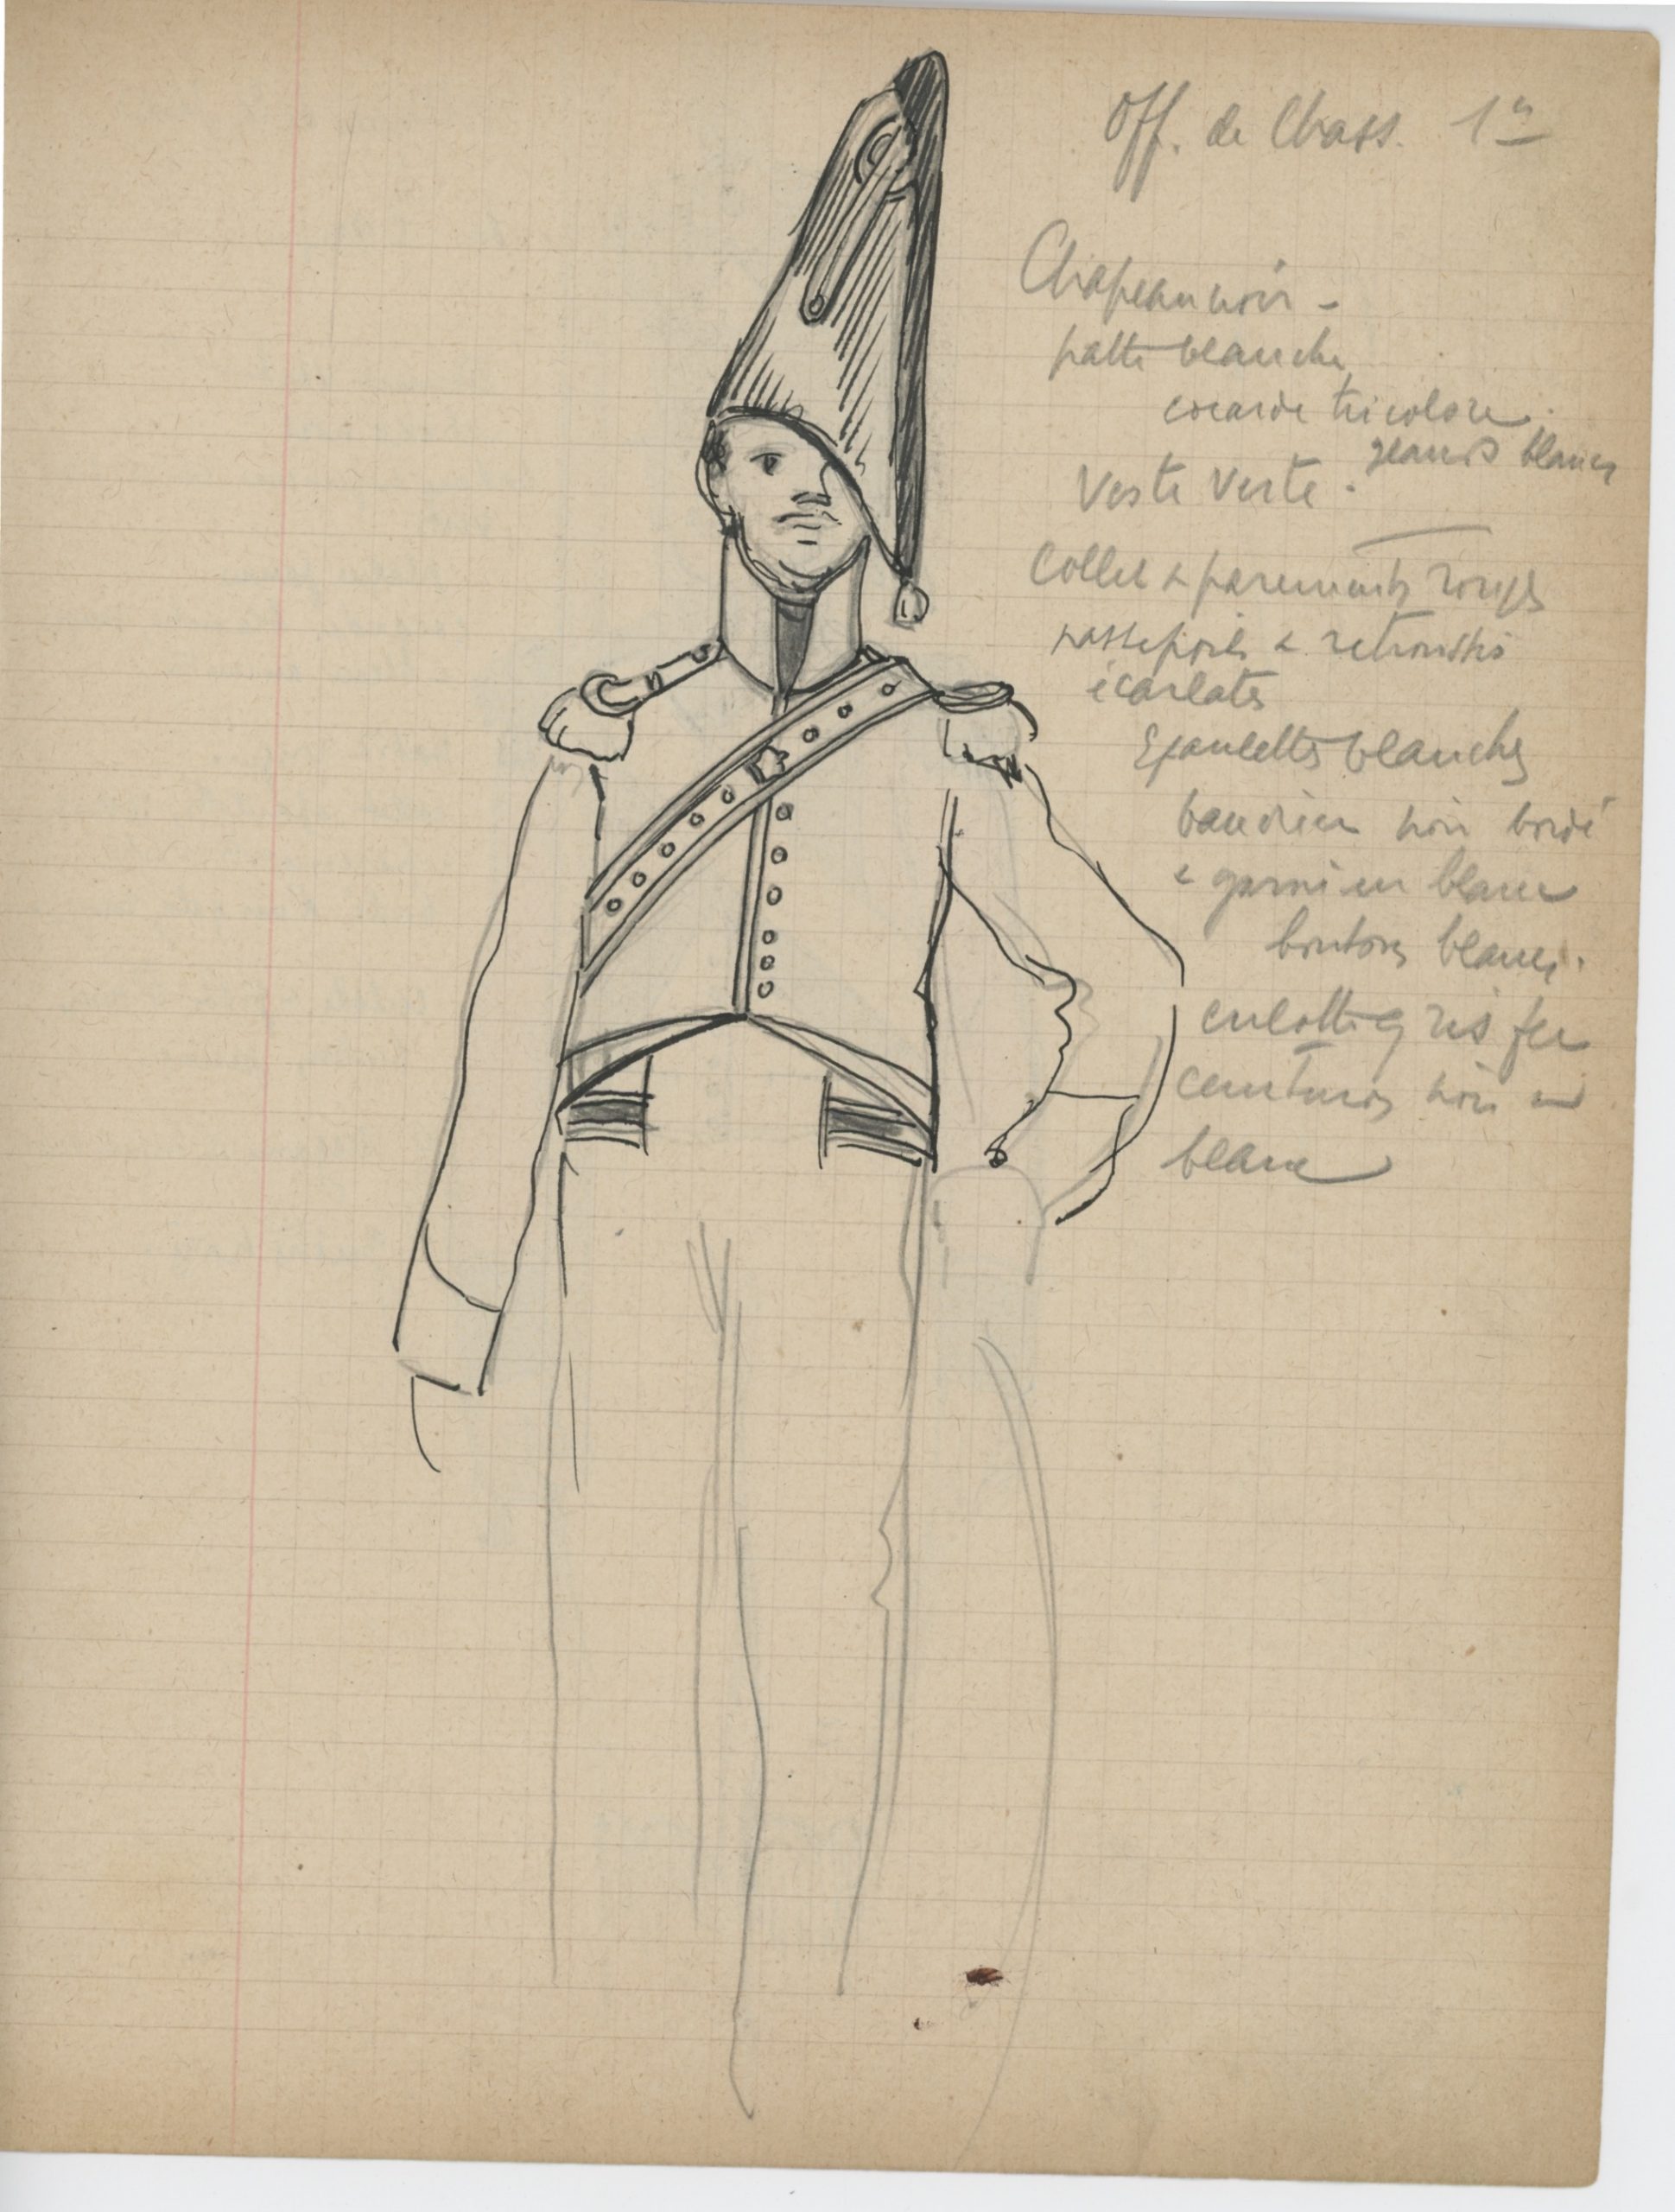 Off. de Chass. 1er
Chapeau noir -
patte blanche
cocarde tricolore.
glands blancs
Veste verte.
Collet & parements rouges
passepoils & retroussis
écarlates
Epaulettes blanches
baudrier noir bordé
& garni en blanc
boutons blancs.
culotte gris fer
ceinturon noir
blanc